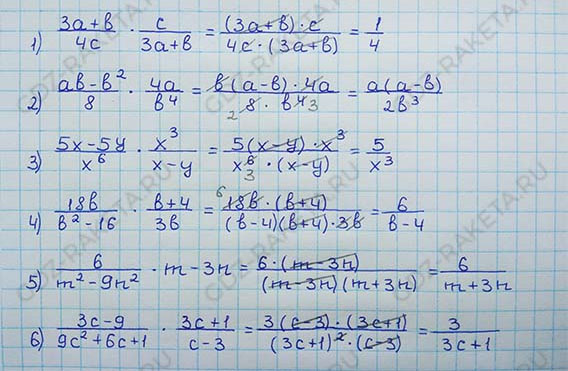 1) (3a+b)/(4c) · c/(3a+b) = ((3a+b)·c)/(4c·(3a+b)) = 1/4
2) (ab-b²)/8 · 4a/b⁴ = (b(a-b)·4a)/(8·b⁴) 2 3 = (a(a-b))/(2b³)
3) (5x-5y)/x⁶ · x³/(x-y) = (5(x-y)·x³)/(x⁶·(x-y)) 3 = 5/x³
4) 18b/(b²-16) · (b+4)/(3b) = 6 (18b·(b+4))/((b-4)(b+4)·3b) = 6/(b-4)
5) 6/(m²-9n²) · m-3n = (6·(m-3n))/((m-3n)(m+3n)) = 6/(m+3n)
6) (3c-9)/(9c²+6c+1) · (3c+1)/(c-3) = (3(c-3)·(3c+1))/((3c+1)²·(c-3)) = 3/(3c+1)
GDZ-RAKETA.RU